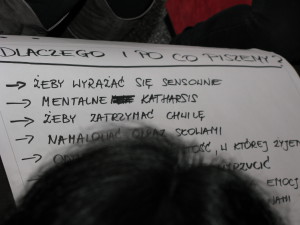 DLACZEGO I PO CO PISZEMY?
→ ŻEBY WYRAŻAĆ SIĘ SENSOWNIE
→ MENTALNE KATHARSIS
→ ŻEBY ZATRZYMAĆ CHWILĘ
→ NAMALOWAĆ OBRAZ SŁOWAMI
→ OŚĆ, W KTÓREJ ŻYJEM
RZUCIĆ
EMOCJ
AMI